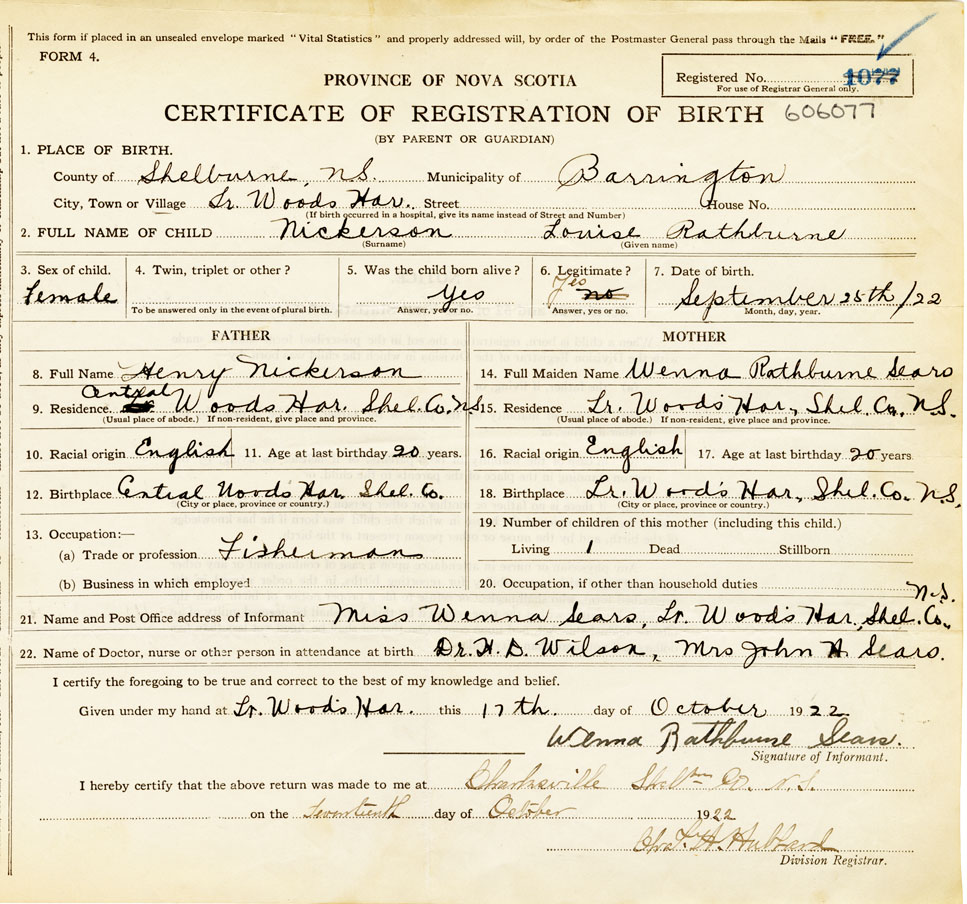 This form if placed in an unsealed envelope marked "Vital Statistics" and properly addressed will, by order of the Postmaster General pass through the Mails "FREE."
FORM 4.
PROVINCE OF NOVA SCOTIA
Registered No. 1077
For use of Registrar General only.
CERTIFICATE OF REGISTRATION OF BIRTH 606077
(BY PARENT OR GUARDIAN)
1. PLACE OF BIRTH.
County of Shelburne, N.S. Municipality of Barrington
City, Town or Village Lr. Woods Har. Street House No.
(If birth occurred in a hospital, give its name instead of Street and Number)
2. FULL NAME OF CHILD Nickerson Louise Rathburne
(Surname) (Given name)
3. Sex of child. 4. Twin, triplet or other? 5. Was the child born alive? 6. Legitimate? 7. Date of birth.
Female yes Yes no September 25th/22
To be answered only in the event of plural birth. Answer, yes or no. Answer, yes or no. Month, day, year.
FATHER MOTHER
8. Full Name Henry Nickerson 14. Full Maiden Name Wenna Rathburne Sears
9. Residence. Central Woods Har. Shel. Co. N.S. 15. Residence Lr. Woods Har, Shel. Co, N.S.
(Usual place of abode.) If non-resident, give place and province. (Usual place of abode.) If non-resident, give place and province.
10. Racial origin English 11. Age at last birthday 20 years. 16. Racial origin English 17. Age at last birthday 20 years
12. Birthplace Central Woods Har. Shel. Co. 18. Birthplace Lr. Wood's Har, Shel. Co. N.S,
(City or place, province or country.) (City or place, province or country.)
13. Occupation:— 19. Number of children of this mother (including this child.)
(a) Trade or profession Fisherman Living 1 Dead Stillborn
(b) Business in which employed 20. Occupation, if other than household duties
21. Name and Post Office address of Informant Miss Wenna Sears, Lr. Wood's Har, Shel. Co., N.S.
22. Name of Doctor, nurse or other person in attendance at birth Dr. H. D. Wilson, Mrs John A. Sears.
I certify the foregoing to be true and correct to the best of my knowledge and belief.
Given under my hand at Lr. Wood's Har. this 17th. day of October 1922
Wenna Rathburne Sears.
Signature of Informant.
I hereby certify that the above return was made to me at Charlesville Shelbn Co. N.S.
on the Seventeenth day of October 1922
Hubbard
Division Registrar.